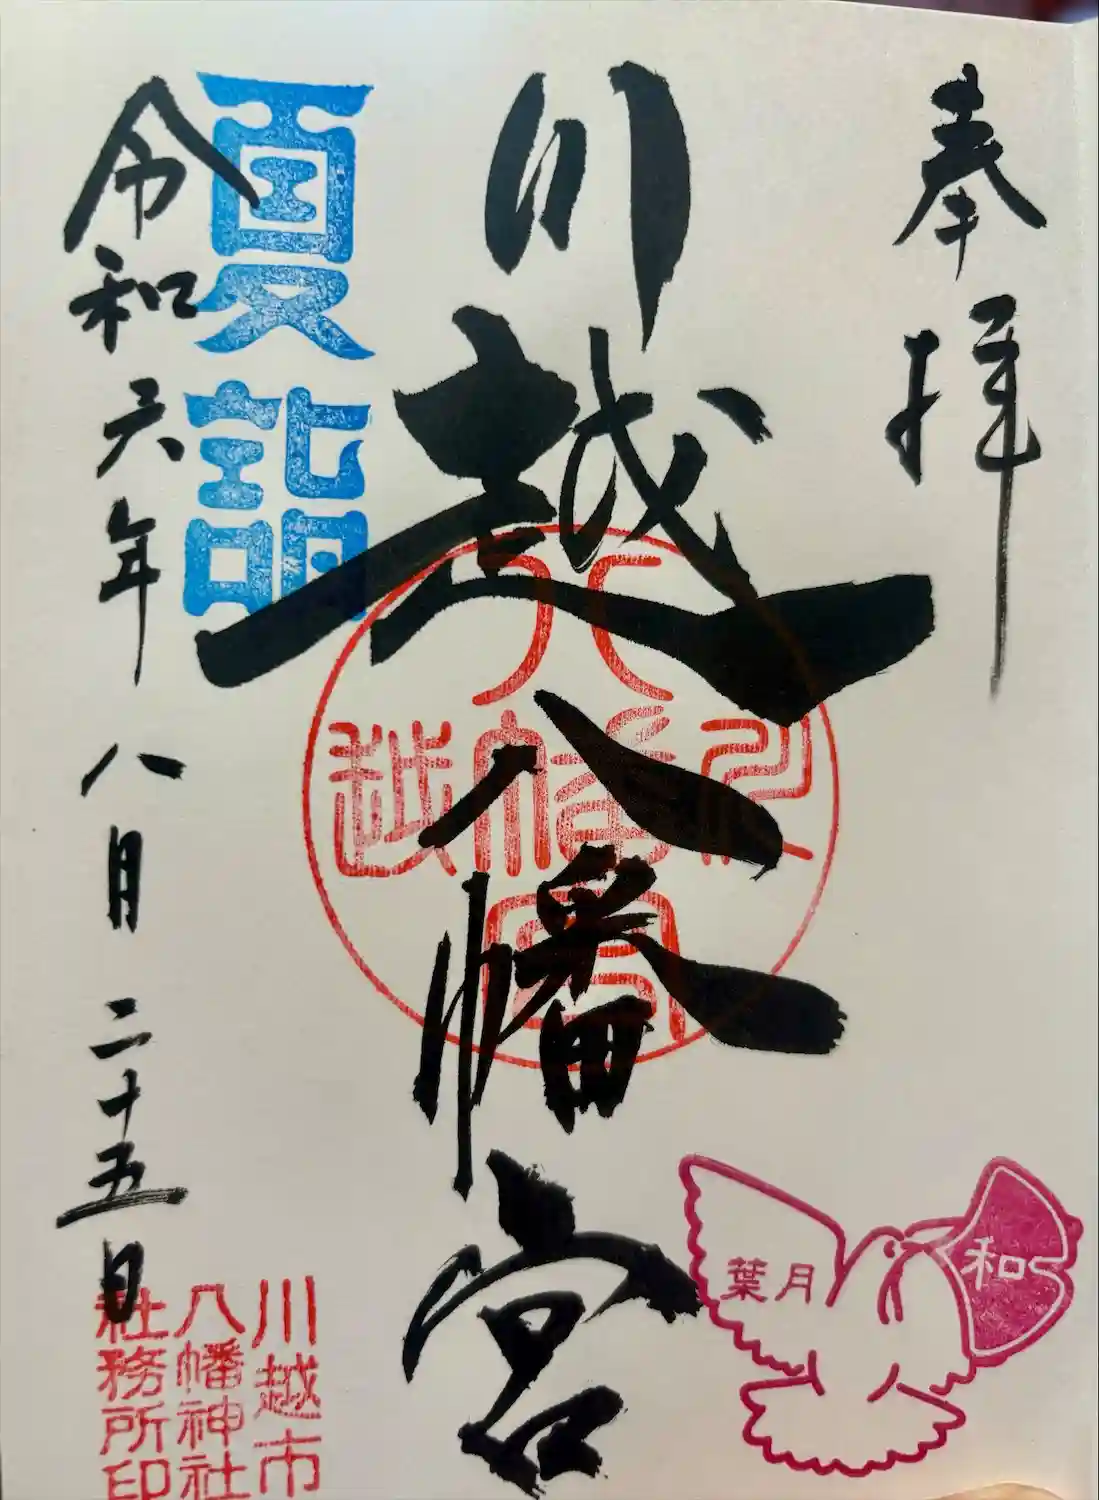 奉拝
川越八幡宮
夏詣
令和六年八月二十五日
八
川幡越
宮
葉月
和
川越市
八幡神社
社務所印